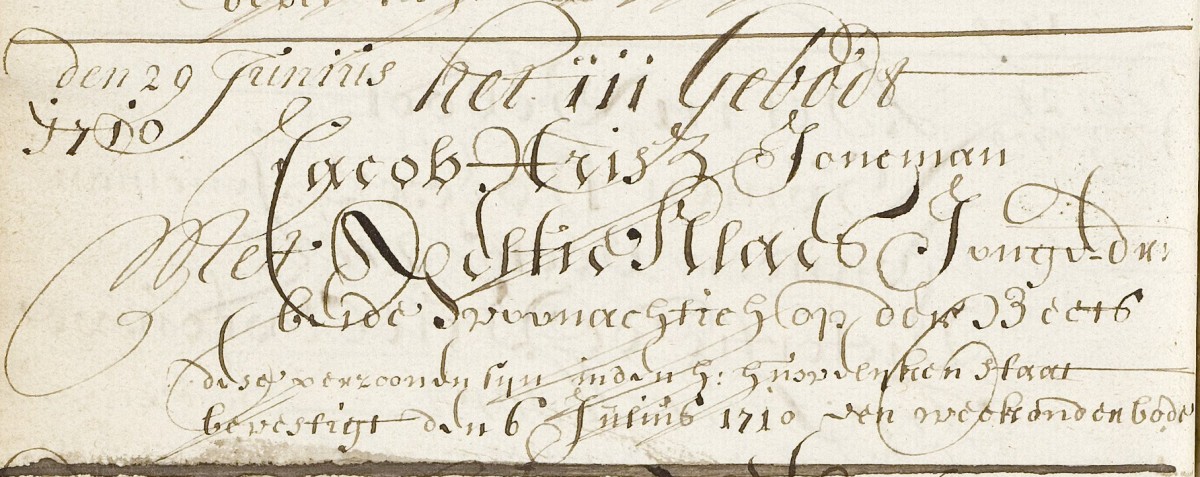 den 29 Junius het iii Gebodt
1710
Jacob Krisz Joneman
Met Neltie Klaes Jonge dr
beide woonachtich op den Beets
dese perzoonen sijn in den h: huwelijken staat
bevestigt den 6 Julius 1710 een week onden bode